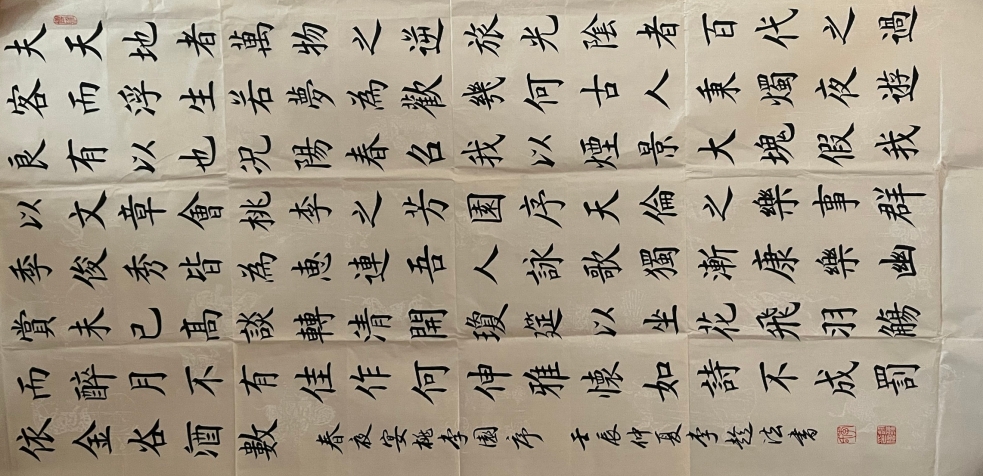 夫天地者萬物之逆旅光陰者百代之過
客而浮生若夢為歡幾何古人秉燭夜遊
良有以也況陽春召我以煙景大塊假我
以文章會桃李之芳園序天倫之樂事群
季俊秀皆為惠連吾人詠歌獨漸康樂幽
賞未已髙談轉清開瓊筵以坐花飛羽觴
而醉月不有佳作何伸雅懷如詩不成罰
依金谷酒數
春夜宴桃李園序
壬辰仲夏李法書